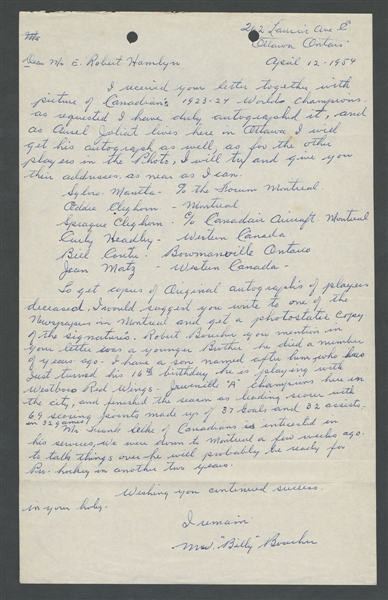 262 Laurier Ave E
Ottawa Ontari
April 12 - 1954
Dear Mr E. Robert Hamlyn
I received your letter together with
picture of Canadian's 1923-24 Worlds Champions,
as requested I have duly autographed it, and
as Aurel Joliat lives here in Ottawa I will
get his autograph as well, as for the other
players in the Photo, I will try and give you
their addresses as near as I can.
Sylvo. Mantha - To the Forum Montreal
Oddie Cleghorn - Montreal
Sprague Cleghorn - c/o Canadair Aircraft Montreal
Curly Headley - Western Canada
Bill Bowmanville Ontario
Jean Matz - Western Canada -
To get copies of Original autographs of players
deceased, I would suggest you write to one of the
Newspapers in Montreal and get a photostatic copy
of the signatures. Robert Boucher you mention in
your letter was a younger Brother he died a number
of years ago. I have a son named after him who has
just turned his 16th birthday he is playing with
Westboro Red Wings - Juvenile "A" Champions here in
the city, and finished the season as leading scorer with
69 scoring points made up of 37 Goals and 32 assists.
in 32 games
Mr Frank Selke of Canadiens is interested in
his services, we were down to Montreal a few weeks ago
to talk things over he will probably be ready for
Pro. hockey in another two years.
Wishing you continued success
in your hoby.
I remain
"Billy" Boucher